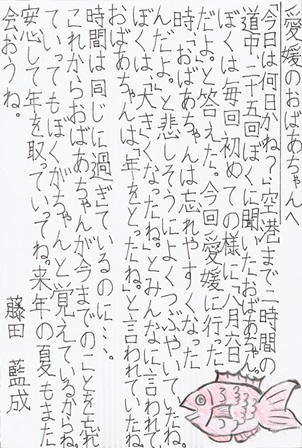 愛媛のおばあちゃんへ
「今日は何日かね？」空港まで二時間の
道中、二十五回ぼくに聞いたおばあちゃん。
ぼくは毎回初めての様に「八月六日
だよ。」と答えた。今回愛媛に行った
時、「おばあちゃんは忘れやすくなった
んだよ。」と悲しそうによくつぶやいていたね。
ぼくは「大きくなったね。」とみんなに言われて
おばあちゃんは「年をとったね。」と言われていたね。
時間は同じに過ぎているのに…。
これからおばあちゃんが今までのことを忘れ
ていってもぼくがちゃんと覚えているからね。
安心して年を取っていってね。来年の夏もまた
会おうね。
藤田 藍成